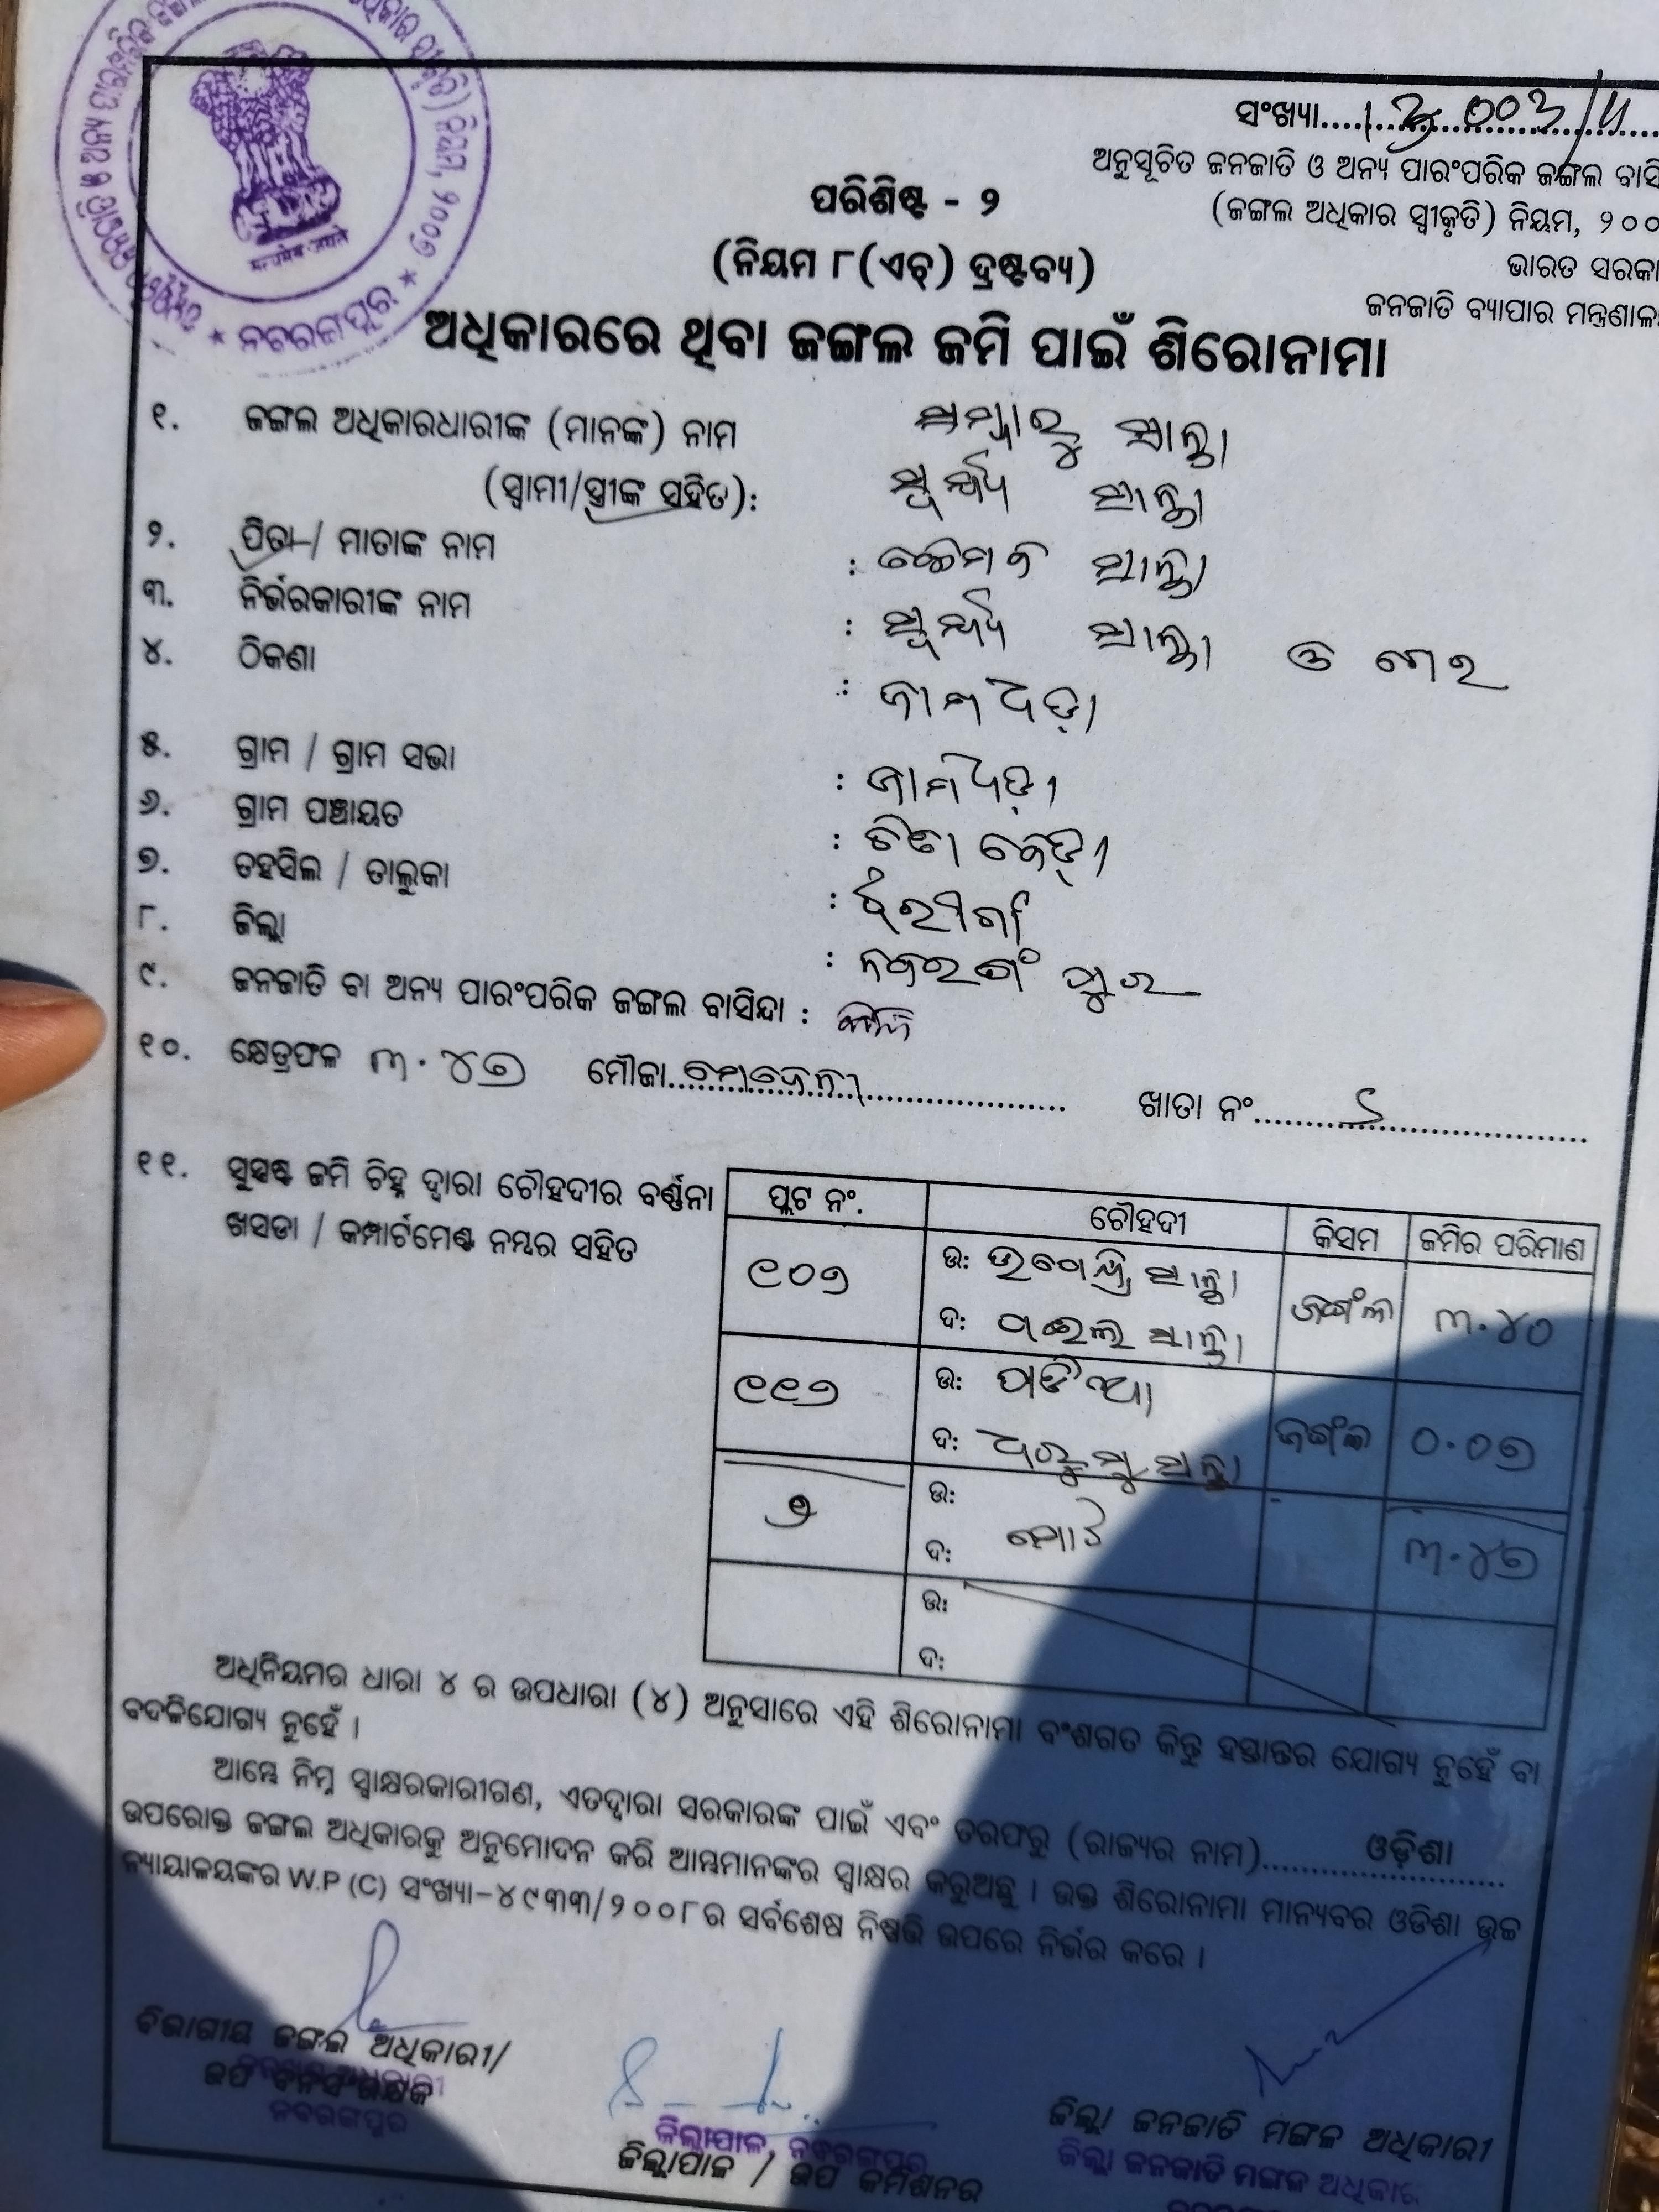 ସଂଖ୍ୟା
ଅନୁସୂଚିତ ଜନଜାତି ଓ ଅନ୍ୟ ପାରଂପରିକ ଜଙ୍ଗଲ ବାସି
(ଜଙ୍ଗଲ ଅଧିକାର ସ୍ୱୀକୃତି) ନିୟମ, ୨୦୦
ଭାରତ ସରକା
ଜନଜାତି ବ୍ୟାପାର ମନ୍ତ୍ରଣାଳ
ନବରଙ୍ଗପୁର
ପରିଶିଷ୍ଟ - ୨
(ନିୟମ ୮(ଏଚ୍) ଦ୍ରଷ୍ଟବ୍ୟ)
ଅଧିକାରରେ ଥିବା ଜଙ୍ଗଲ ଜମି ପାଇଁ ଶିରୋନାମା
୧. ଜଙ୍ଗଲ ଅଧିକାରଧାରୀଙ୍କ (ମାନଙ୍କ) ନାମ ସାନ୍ତା
(ସ୍ୱାମୀ/ସ୍ତ୍ରୀଙ୍କ ସହିତ): ସାନ୍ତା
୨. ପିତା / ମାତାଙ୍କ ନାମ : ସାନ୍ତା
୩. ନିର୍ଭରକାରୀଙ୍କ ନାମ : ସାନ୍ତା ଓ
୪. ଠିକଣା : ଜାମଧଡ଼ା
୫. ଗ୍ରାମ / ଗ୍ରାମ ସଭା : ଜାମଧଡ଼ା
୬. ଗ୍ରାମ ପଞ୍ଚାୟତ :
୭. ତହସିଲ / ତାଲୁକା : ଝରିଗାଁ
୮. ଜିଲ୍ଲା : ନବରଗଂପୁର
୯. ଜନଜାତି ବା ଅନ୍ୟ ପାରଂପରିକ ଜଙ୍ଗଲ ବାସିନ୍ଦା :
୧୦. କ୍ଷେତ୍ରଫଳ ୩.୪୭ ମୌଜା ଖାତା ନଂ
୧୧. ସୁସ୍ପଷ୍ଟ ଜମି ଚିହ୍ନ ଦ୍ୱାରା ଚୌହଦୀର ବର୍ଣ୍ଣନା
ଖସଡା / କମ୍ପାର୍ଟମେଣ୍ଟ ନମ୍ବର ସହିତ
ପ୍ଲଟ ନଂ. ଚୌହଦୀ କିସମ ଜମିର ପରିମାଣ
୯୦୭ ଉ: ସାନ୍ତା ଜଙ୍ଗଲ ୩.୪୦
ଦ: ସାନ୍ତା
୯୯୭ ଉ: ପାଡିଆ ଜଙ୍ଗଲ ୦.୦୭
ଦ: ସାନ୍ତା
୨ ଉ: ୩.୪୭
ଦ: ମୋଟ
ଉ:
ଦ:
ଅଧିନିୟମର ଧାରା ୪ ର ଉପଧାରା (୪) ଅନୁସାରେ ଏହି ଶିରୋନାମା ବଂଶଗତ କିନ୍ତୁ ହସ୍ତାନ୍ତର ଯୋଗ୍ୟ ନୁହେଁ ବା
ବଦଳିଯୋଗ୍ୟ ନୁହେଁ ।
ଆମ୍ଭେ ନିମ୍ନ ସ୍ୱାକ୍ଷରକାରୀଗଣ, ଏତଦ୍ୱାରା ସରକାରଙ୍କ ପାଇଁ ଏବଂ ତରଫରୁ (ରାଜ୍ୟର ନାମ) ଓଡ଼ିଶା
ଉପରୋକ୍ତ ଜଙ୍ଗଲ ଅଧିକାରକୁ ଅନୁମୋଦନ କରି ଆମ୍ଭମାନଙ୍କର ସ୍ୱାକ୍ଷର କରୁଅଛୁ । ଉକ୍ତ ଶିରୋନାମା ମାନ୍ୟବର ଓଡିଶା ଉଚ୍ଚ
ନ୍ୟାୟାଳୟଙ୍କର W.P (C) ସଂଖ୍ୟା-୪୯୩୩/୨୦୦୮ର ସର୍ବଶେଷ ନିଷ୍ପତ୍ତି ଉପରେ ନିର୍ଭର କରେ ।
ବିଭାଗୀୟ ଜଙ୍ଗଲ ଅଧିକାରୀ/
ଉପ ବନସଂରକ୍ଷକ
ନବରଙ୍ଗପୁର
ଜିଲ୍ଲାପାଳ, ନବରଙ୍ଗପୁର
ଜିଲ୍ଲାପାଳ / ଉପ କମିଶନର
ଜିଲ୍ଲା ଜନଜାତି ମଙ୍ଗଳ ଅଧିକାରୀ
ଜିଲ୍ଲା ଜନଜାତି ମଙ୍ଗଳ ଅଧିକାର